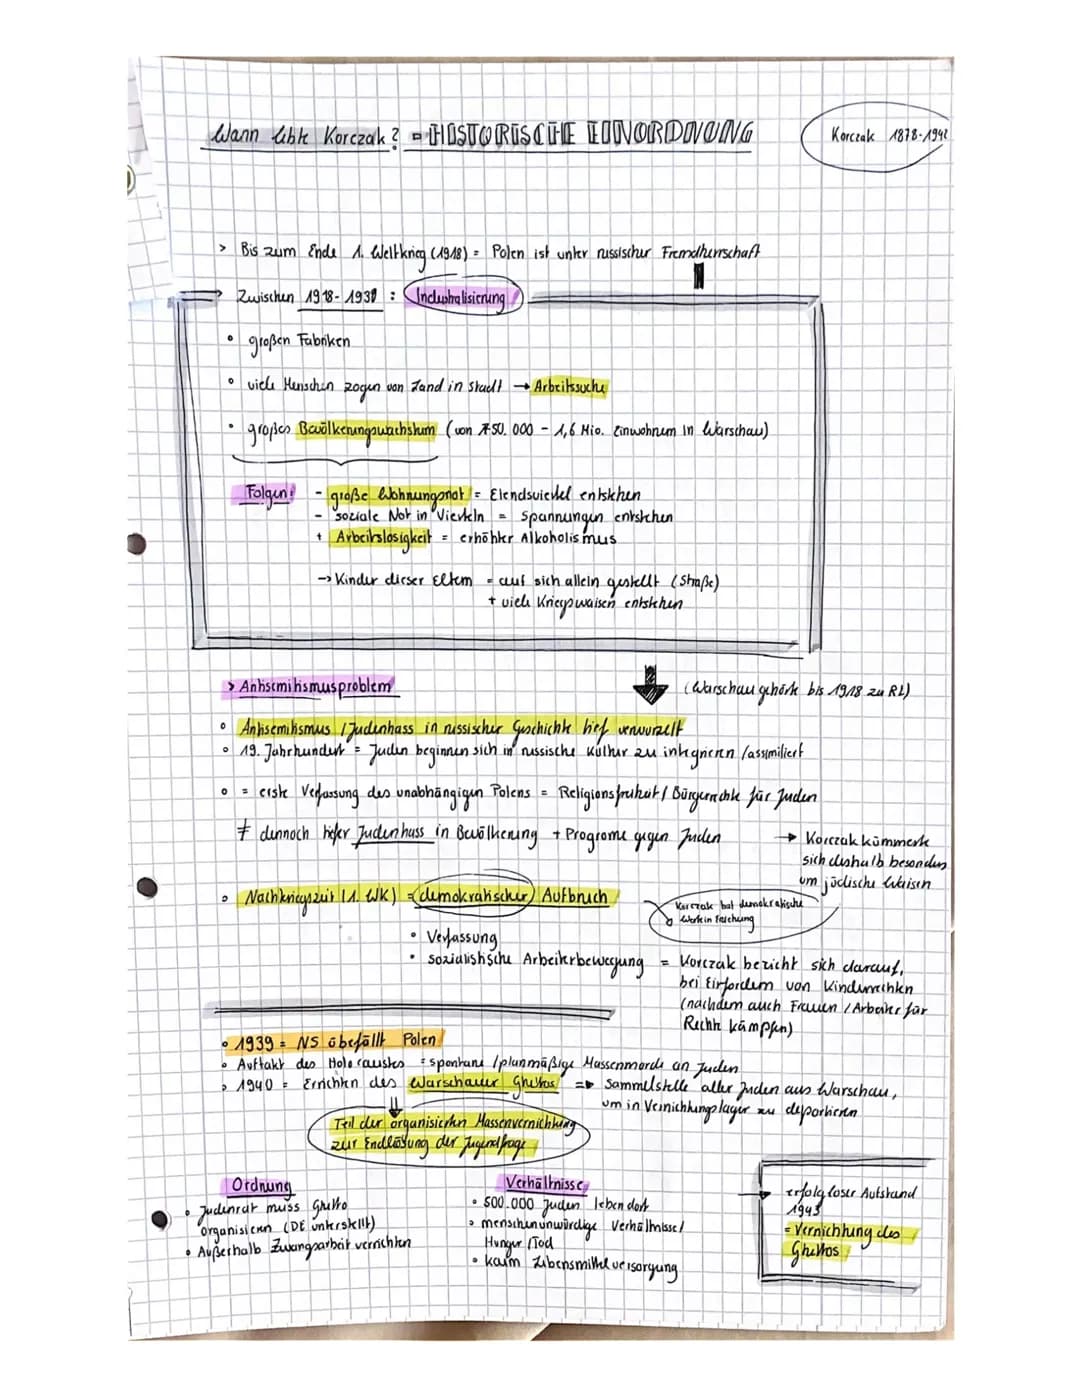 Wann lebte Korczak? = HISTORISCHE EINORDNUNG
Korczak 1878-1942
> Bis zum Ende 1. Weltkrieg (1918) = Polen ist unter russischer Fremdherrschaft
→ Zwischen 1918-1939 : Industrialisierung
• großen Fabriken
• viele Menschen zogen von Land in Stadt → Arbeitssuche
• großes Bevölkerungswachstum (von 750.000 - 1,6 Mio. Einwohnern in Warschau)
Folgen: - große Wohnungsnot = Elendsviertel entstehen
- soziale Not in Vierteln = Spannungen entstehen
+ Arbeitslosigkeit = erhöhter Alkoholismus
→ Kinder dieser Eltern = auf sich allein gestellt (Straße)
+ viele Kriegswaisen entstehen
> Antisemitismusproblem
(Warschau gehörte bis 1918 zu RL)
• Antisemitismus / Judenhass in russischer Geschichte tief verwurzelt
• 19. Jahrhundert = Juden beginnen sich in russische Kultur zu integrieren /assimiliert
• = erste Verfassung des unabhängigen Polens = Religionsfreiheit / Bürgerrechte für Juden
≠ dennoch tiefer Judenhass in Bevölkerung + Progrome gegen Juden
→ Korczak kümmerte
sich deshalb besonders
um jüdische Waisen
• Nachkriegszeit (1. WK) = demokratischer Aufbruch
Korczak hat demokratische
Werte in Erziehung
• Verfassung
• sozialistische Arbeiterbewegung = Korczak bezieht sich darauf,
bei Einfordern von Kinderrechten
(nachdem auch Frauen / Arbeiter für
Rechte kämpfen)
• 1939 = NS überfällt Polen
• Auftakt des Holocaustes = spontane /planmäßige Massenmorde an Juden
• 1940 = Errichten des Warschauer Ghettos => Sammelstelle aller Juden aus Warschau,
um in Vernichtungslager zu deportieren
Teil der organisierten Massenvernichtung
zur Endlösung der Jugendfrage
Ordnung
• Judenrat muss Ghetto
organisieren (DE unterstellt)
• Außerhalb Zwangsarbeit verrichten
Verhältnisse
• 500.000 Juden leben dort
• menschenunwürdige Verhältnisse /
Hunger /Tod
• kaum Lebensmittelversorgung
→ erfolgloser Aufstand
1943
= Vernichtung des
Ghettos